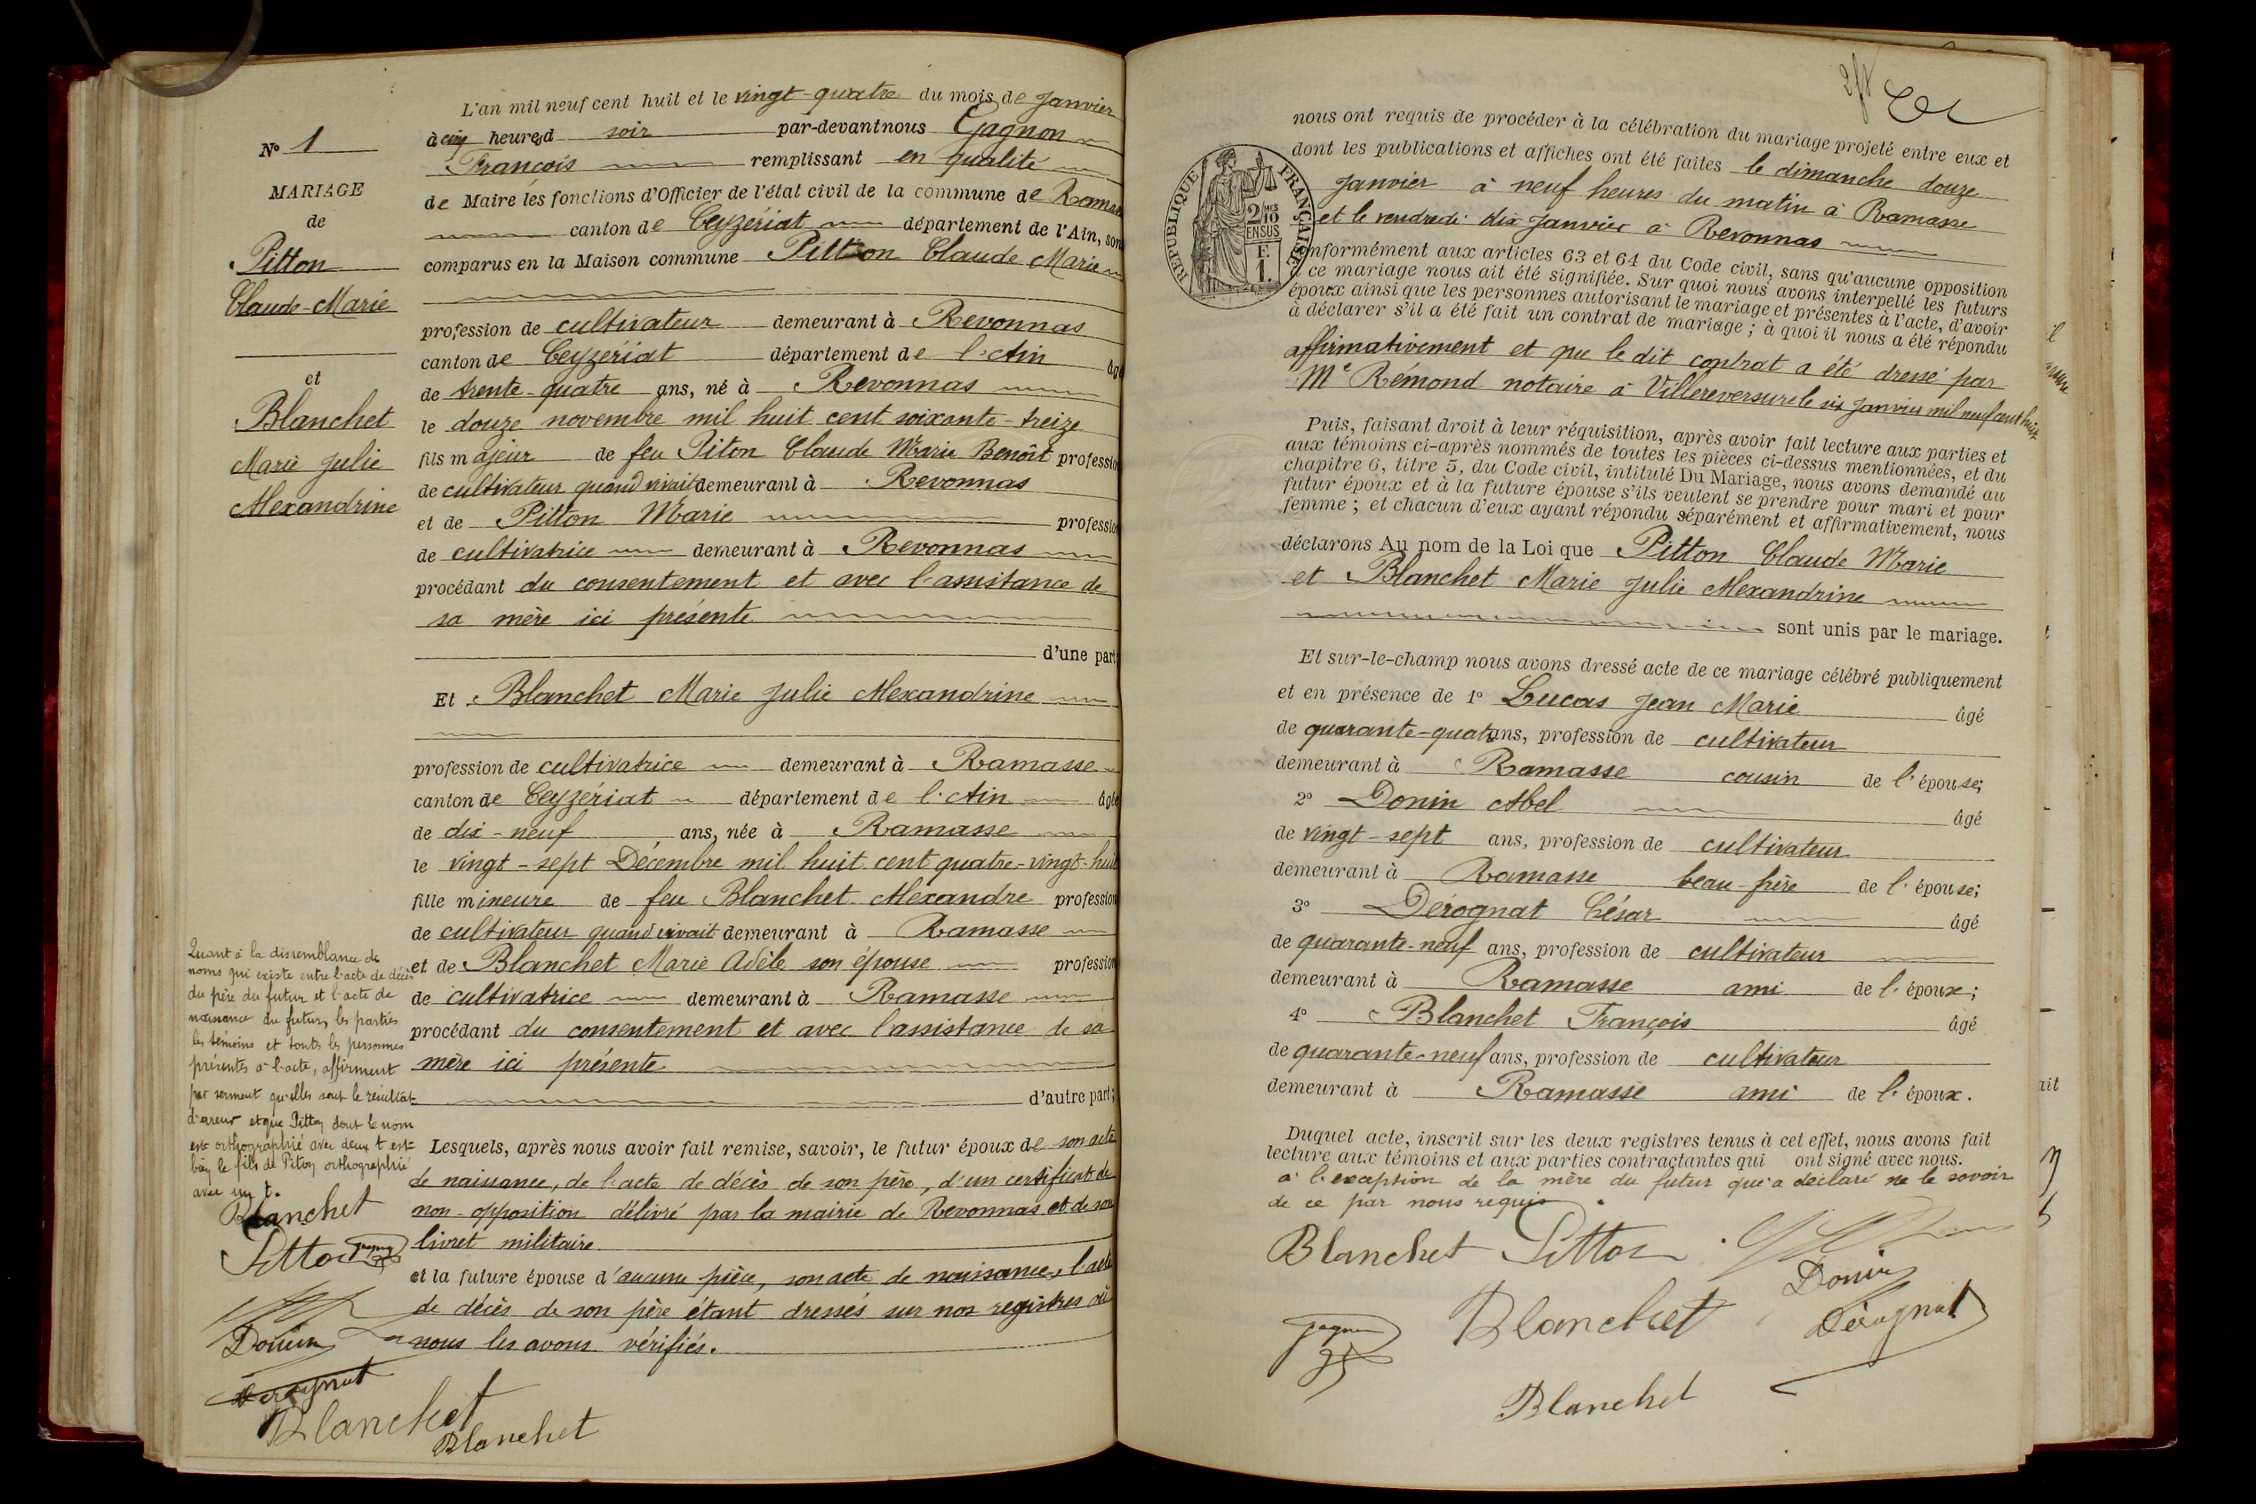 L'an mil neuf cent huit et le vingt-quatre du mois de Janvier
à cinq heures d soir par-devant nous Gagnon
François remplissant en qualité
de Maire les fonctions d'Officier de l'état civil de la commune de Ramasse
canton de Ceyzériat département de l'Ain, sont
comparus en la Maison commune Pitton Claude Marie
profession de cultivateur demeurant à Revonnas
canton de Ceyzériat département de l'Ain âgé
de trente-quatre ans, né à Revonnas
le douze novembre mil huit cent soixante-treize
fils majeur de feu Piton Claude Marie Benoît profession
de cultivateur quand vivait demeurant à Revonnas
et de Pitton Marie profession
de cultivatrice demeurant à Revonnas
procédant du consentement et avec l'assistance de
sa mère ici présente
d'une part;
Et Blanchet Marie Julie Alexandrine
profession de cultivatrice demeurant à Ramasse
canton de Ceyzériat département de l'Ain âgée
de dix-neuf ans, née à Ramasse
le vingt-sept Décembre mil huit cent quatre-vingt-huit
fille mineure de feu Blanchet Alexandre profession
de cultivateur quand vivait demeurant à Ramasse
et de Blanchet Marie Adèle son épouse profession
de cultivatrice demeurant à Ramasse
procédant du consentement et avec l'assistance de sa
mère ici présente
d'autre part;
Lesquels, après nous avoir fait remise, savoir, le futur époux de son acte
de naissance, de l'acte de décès de son père, d'un certificat de
non-opposition délivré par la mairie de Revonnas et de son
livret militaire
et la future épouse d'aucune pièce, son acte de naissance, l'acte
de décès de son père étant dressés sur nos registres où
nous les avons vérifiés.
N° 1
MARIAGE
de
Pitton
Claude-Marie
et
Blanchet
Marie Julie
Alexandrine
Quant à la dissemblance de
noms qui existe entre l'acte de décès
du père du futur et l'acte de
naissance du futur, les parties
les témoins et toutes les personnes
présentes à l'acte, affirment
par serment qu'elles sont le résultat
d'erreur et que Pitton dont le nom
est orthographié avec deux t est
bien le fils de Piton orthographié
avec un t.
Blanchet
Pitton Gagnon
Donin
Dérognat
Blanchet
Blanchet
nous ont requis de procéder à la célébration du mariage projeté entre eux et
dont les publications et affiches ont été faites le dimanche douze
Janvier à neuf heures du matin à Ramasse
et le vendredi dix Janvier à Revonnas
conformément aux articles 63 et 64 du Code civil, sans qu'aucune opposition
à ce mariage nous ait été signifiée. Sur quoi nous avons interpellé les futurs
époux ainsi que les personnes autorisant le mariage et présentes à l'acte, d'avoir
à déclarer s'il a été fait un contrat de mariage; à quoi il nous a été répondu
affirmativement et que le dit contrat a été dressé par
Me Rémond notaire à Villereversure le six Janvier mil neuf cent huit
Puis, faisant droit à leur réquisition, après avoir fait lecture aux parties et
aux témoins ci-après nommés de toutes les pièces ci-dessus mentionnées, et du
chapitre 6, titre 5, du Code civil, intitulé Du Mariage, nous avons demandé au
futur époux et à la future épouse s'ils veulent se prendre pour mari et pour
femme; et chacun d'eux ayant répondu séparément et affirmativement, nous
déclarons Au nom de la Loi que Pitton Claude Marie
et Blanchet Marie Julie Alexandrine
sont unis par le mariage.
Et sur-le-champ nous avons dressé acte de ce mariage célébré publiquement
et en présence de 1° Lucas Jean Marie âgé
de quarante-quatre ans, profession de cultivateur
demeurant à Ramasse cousin de l'épouse;
2° Donin Abel âgé
de vingt-sept ans, profession de cultivateur
demeurant à Ramasse beau-frère de l'épouse;
3° Dérognat César âgé
de quarante-neuf ans, profession de cultivateur
demeurant à Ramasse ami de l'époux;
4° Blanchet François âgé
de quarante-neuf ans, profession de cultivateur
demeurant à Ramasse ami de l'époux.
Duquel acte, inscrit sur les deux registres tenus à cet effet, nous avons fait
lecture aux témoins et aux parties contractantes qui ont signé avec nous.
à l'exception de la mère du futur qui a déclaré ne le savoir
de ce par nous requis.
Blanchet Pitton
Donin
Gagnon Blanchet Dérognat
Blanchet
RÉPUBLIQUE FRANÇAISE
2/10
EN SUS
F.
1.